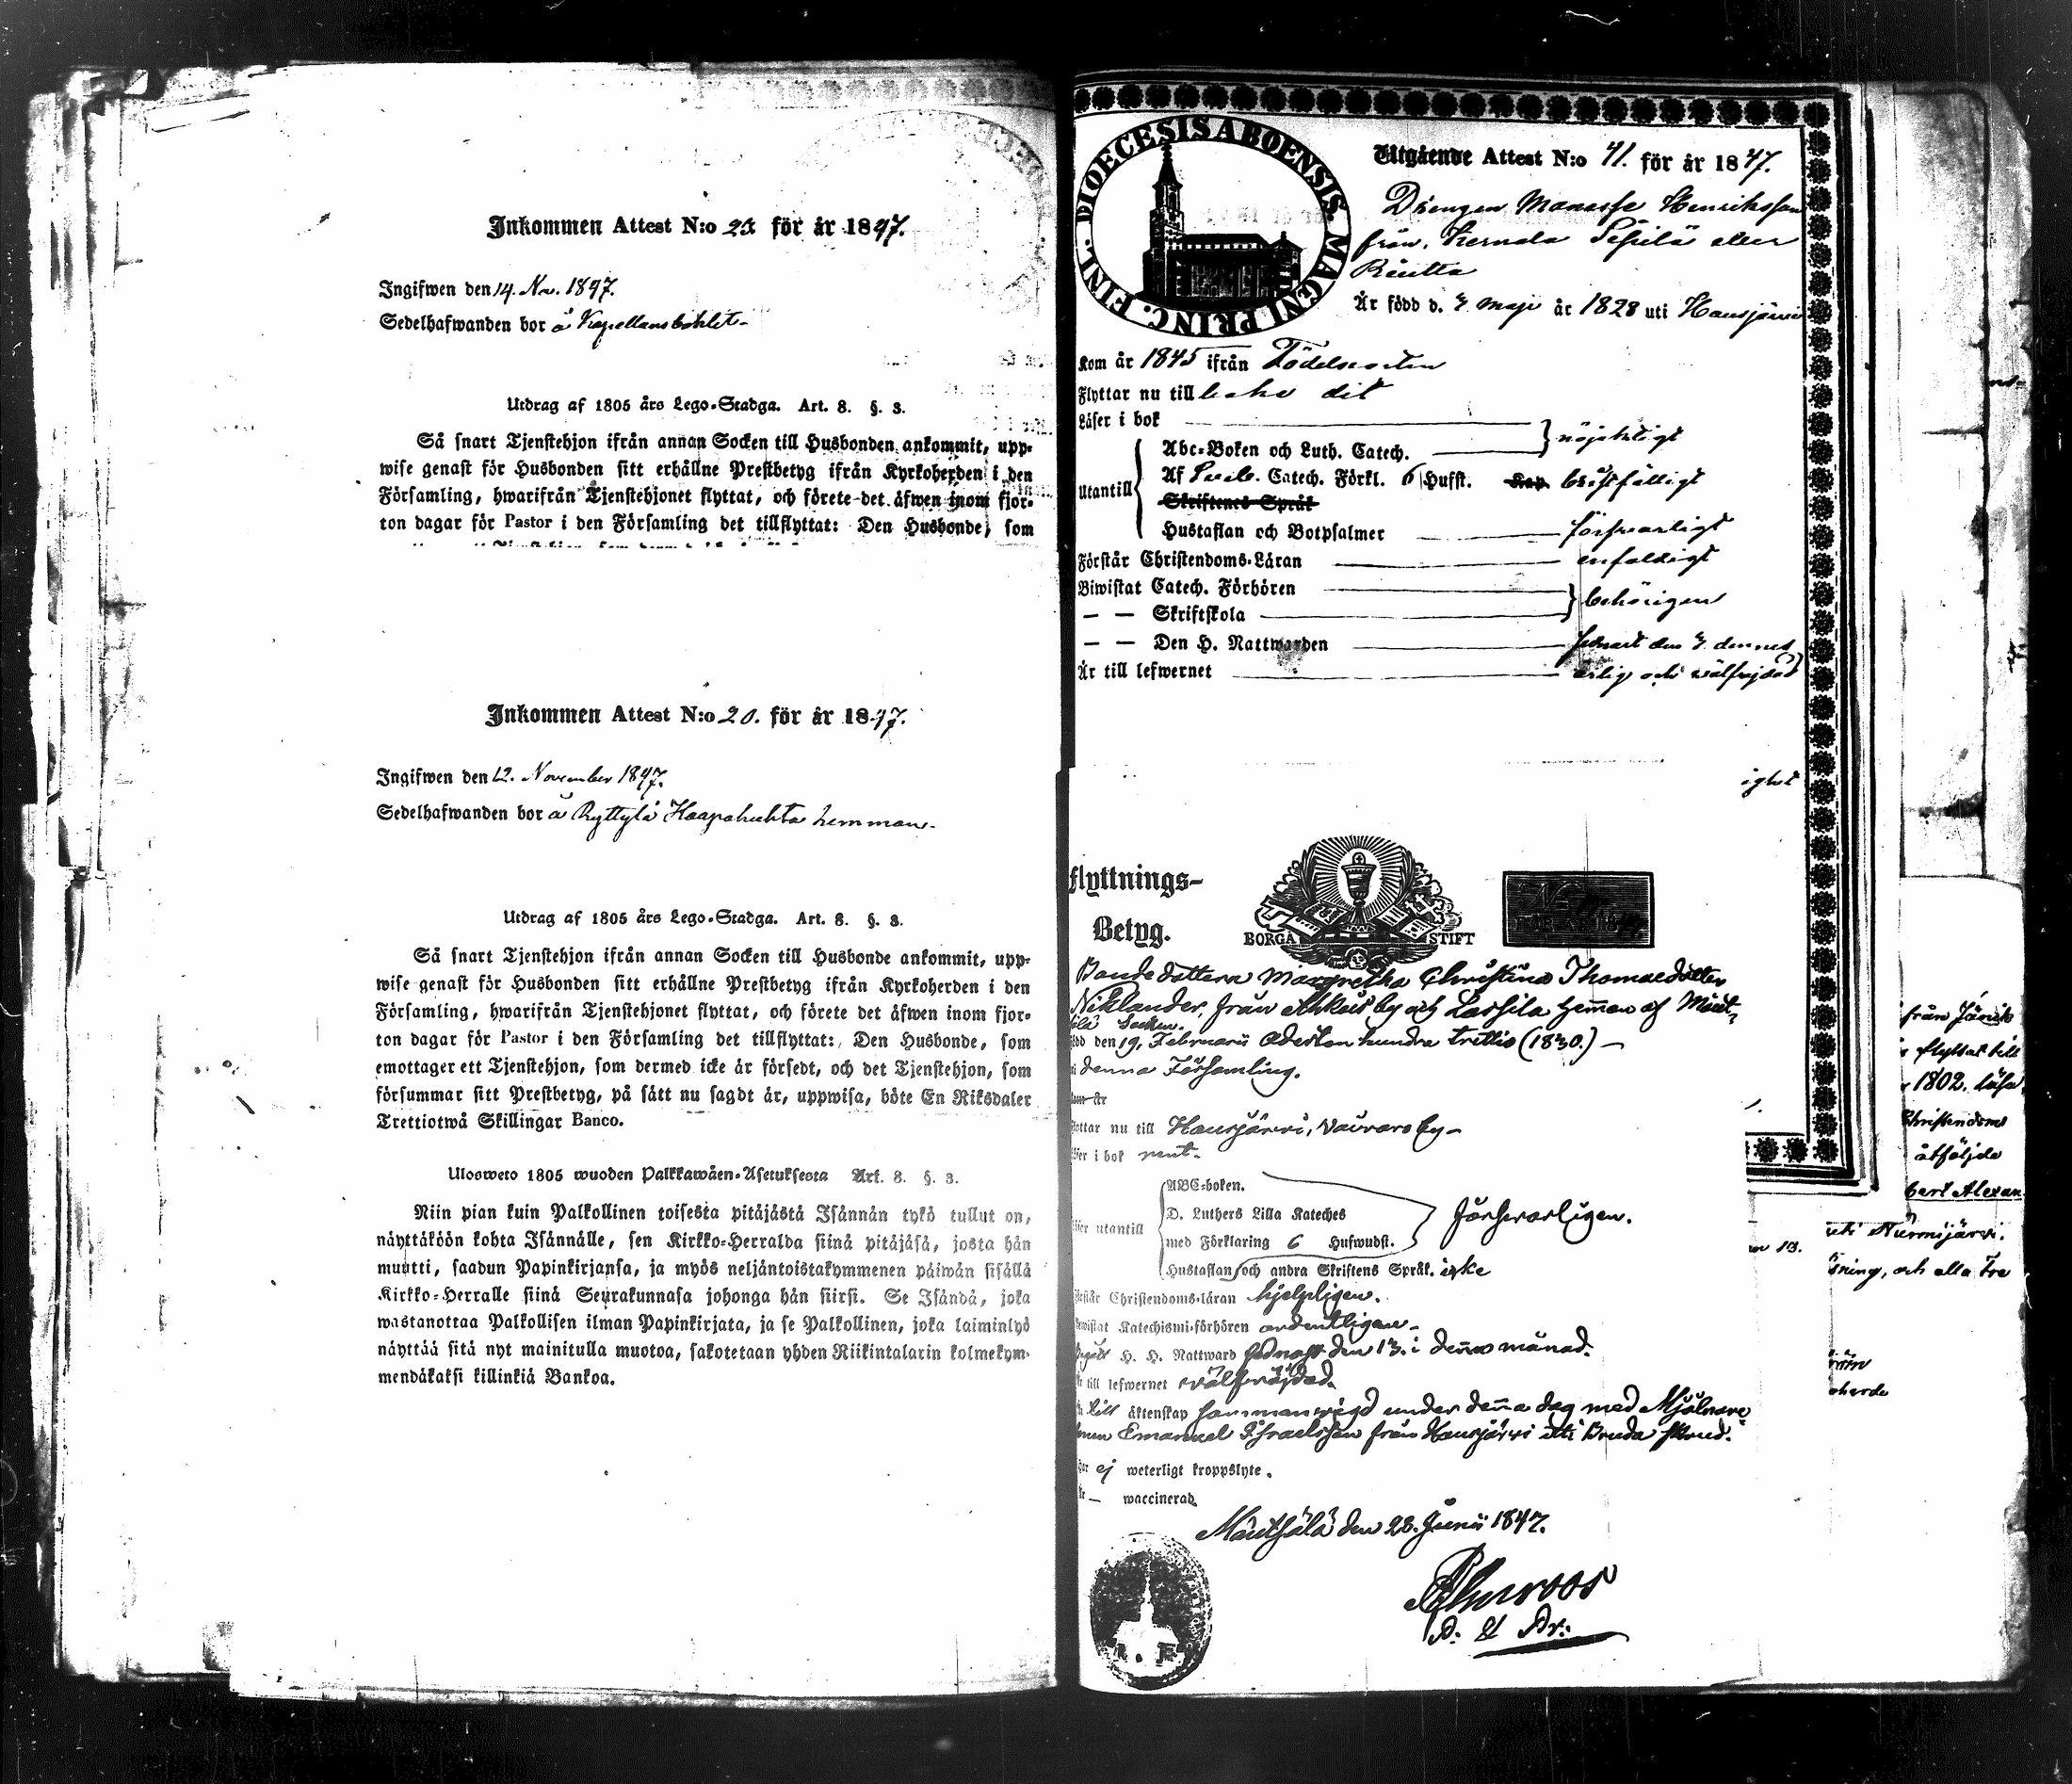 Inkommen Attest N:o 23 för år 1847.
Ingifwen den 14. Nov. 1847.
Sedelhafwanden bor å Kapellansbohlet.
Utdrag af 1805 års Lego-Stadga. Art. 8. §. 3.
Så snart Tjenstehjon ifrån annan Socken till Husbonden ankommit, upp-
wise genast för Husbonden sitt erhållne Prestbetyg ifrån Kyrkoherden i den
Församling, hwarifrån Tjenstehjonet flyttat, och förete det äfwen inom fjor-
ton dagar för Pastor i den Församling det tillflyttat: Den Husbonde, som
Inkommen Attest N:o 20. för år 1847.
Ingifwen den 12. November 1847.
Sedelhafwanden bor å Ryttylä Haapahuhta hemman.
Utdrag af 1805 års Lego-Stadga. Art. 8. §. 3.
Så snart Tjenstehjon ifrån annan Socken till Husbonde ankommit, upp-
wise genast för Husbonden sitt erhållne Prestbetyg ifrån Kyrkoherden i den
Församling, hwarifrån Tjenstehjonet flyttat, och förete det äfwen inom fjor-
ton dagar för Pastor i den Församling det tillflyttat: Den Husbonde, som
emottager ett Tjenstehjon, som dermed icke är försedt, och det Tjenstehjon, som
försummar sitt Prestbetyg, på sätt nu sagdt är, uppwisa, böte En Riksdaler
Trettiotwå Skillingar Banco.
Ulosweto 1805 wuoden Palkkawäen-Asetuksesta Art. 8. §. 3.
Niin pian kuin Palkollinen toisesta pitäjästä Isännän tykö tullut on,
näyttäköön kohta Isännälle, sen Kirkko-Herralda siinä pitäjäsä, josta hän
muutti, saadun Papinkirjansa, ja myös neljäntoistakymmenen päiwän sisällä
Kirkko-Herralle siinä Seurakunnasa johonga hän siirsi. Se Isändä, joka
wastanottaa Palkollisen ilman Papinkirjata, ja se Palkollinen, joka laiminlyö
näyttää sitä nyt mainitulla muotoa, sakotetaan yhden Riikintalarin kolmekym-
mendäkaksi killinkiä Bankoa.
DIOECESIS ABOENSIS. MAGNI PRINC. FINL.
Utgående Attest N:o 41. för år 1847.
Drengen Manasse Henriksson
från Kernala Seppälä eller
Rautta
Är född d. 7 Maji år 1828 uti Hausjärvi
Kom år 1845 ifrån Födelseorten
Flyttar nu till baka dit
Läser i bok
nöjaktigt
Abc-Boken och Luth. Catech.
Utantill Af Sveb. Catech. Förkl. 6 Hufst. Kap. bristfälligt
Skriftenes Språk
Hustaflan och Botpsalmer försvarligt
Förstår Christendoms-Läran enfaldigt
Biwistat Catech. Förhören
behörigen
— — Skriftskola
— — Den H. Nattwarden senast den 7. dennes
Är till lefwernet ärlig och välfrejdad
ighet
Flyttnings-
Betyg.
BORGÅ STIFT
Bondedottern Margretha Christina Thomaedotter
Niklander, från Ahlais by och Lassila heman af Mänt-
sälä Socken.
född den 19. Februarii Aderton hundra trettio (1830.) —
i denna Församling.
kom år
flyttar nu till Hausjärvi, Vaivars by —
läser i bok rent.
ABC-boken.
läser utantill D. Luthers Lilla Kateches Försvarligen.
med Förklaring 6 Hufwudst.
Hustaflan och andra Skriftens Språk. icke
förstår Christendoms-läran hjelpligen.
bewistat Katechismi-förhören ordentligen.
begått H. H. Nattward sednast den 13. i denna månad.
är till lefwernet välfräjdad.
är till äktenskap sammanvigd under denna dag med Mjölnare
sonen Emanuel Israelsson från Hausjärvi uti Bruda skrud.
har ej weterligt kroppslyte.
är — waccinerad.
Mäntsälä den 23. Junii 1847.
från Jänis
flyttat till
1802. läsa
Christendoms
åtföljde
bert Alexan
uti Nurmijärvi.
ning, och alla tre
oherde